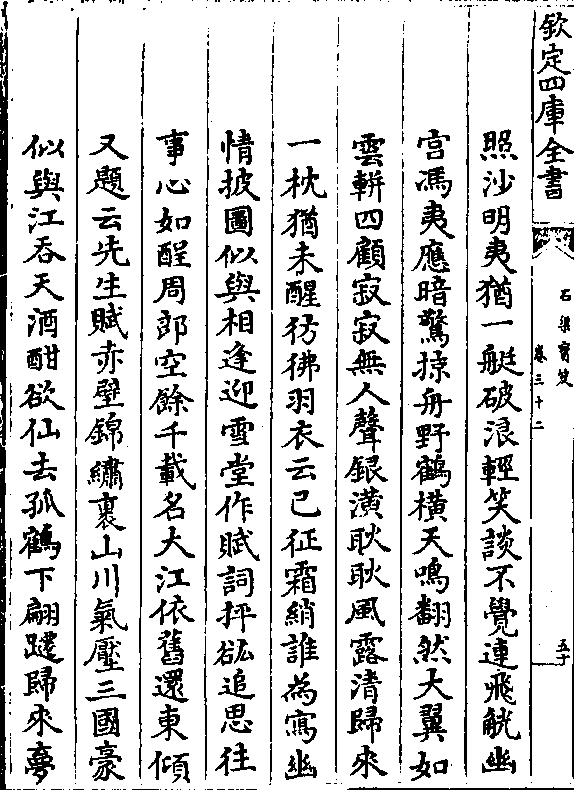 欽定四庫全書
石渠寳笈
卷三十二
五十
照沙明夷猶一艇破浪輕笑談不覺連飛觥幽
宫馮夷應暗驚掠舟野鶴横天鳴翻然大翼如
雲軿四顧寂寂無人聲銀潢耿耿風露清歸來
一枕猶未醒彷彿羽衣云已征霜綃誰為寫幽
情披圖似與相逢迎雪堂作賦詞抨紭追思往
事心如酲周郎空餘千載名大江依舊還東傾
又題云先生賦赤壁錦繡裹山川氣壓三國豪
似與江吞天酒酣欲仙去孤鶴下翩躚歸來夢